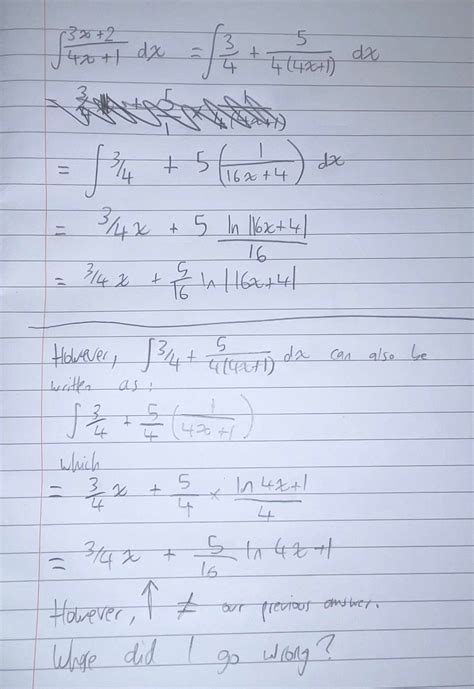 ∫ (3x+2)/(4x+1) dx = ∫ 3/4 + 5/(4(4x+1)) dx
= ∫ 3/4 + 5 (1/(16x+4)) dx
= 3/4 x + 5 ln|16x+4|/16
= 3/4 x + 5/16 ln|16x+4|
However, ∫ 3/4 + 5/(4(4x+1)) dx can also be
written as:
∫ 3/4 + 5/4 (1/(4x+1))
which
= 3/4 x + 5/4 × ln 4x+1/4
= 3/4 x + 5/16 ln 4x+1
However, ↑ ≠ our previous answer.
Where did I go wrong?